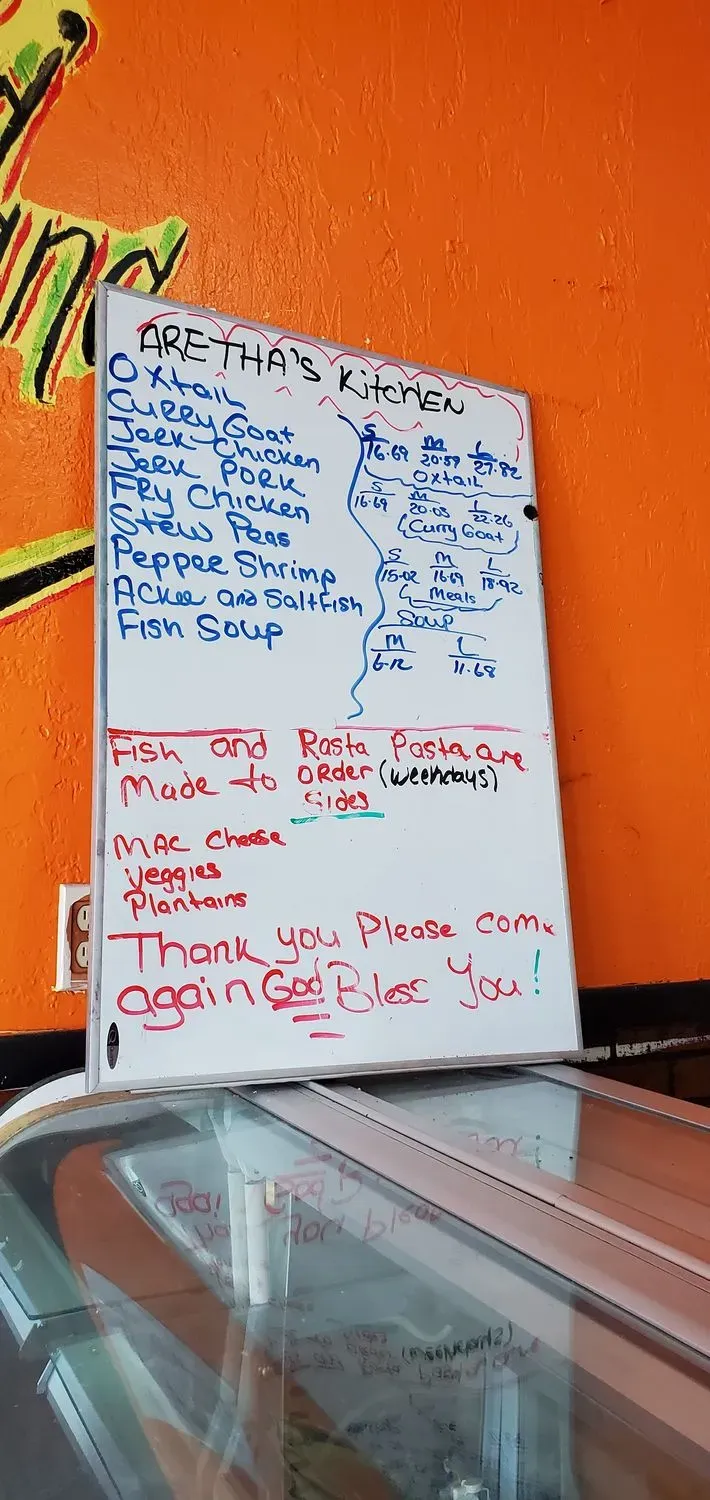 ARETHA'S KitcHEN
Oxtail
Curry Goat
Jerk Chicken
Jerk Pork
Fry Chicken
Stew Peas
Pepper Shrimp
Ackee and Saltfish
Fish Soup
S M L
16.69 20.59 27.82
Oxtail
S M L
16.69 20.05 22.26
Curry Goat
S M L
15.02 16.69 18.92
Meals
Soup
M L
6.12 11.68
Fish and Rasta Pasta are
Made to order (weekdays)
Sides
Mac Cheese
Veggies
Plantains
Thank you Please come
again God Bless You!